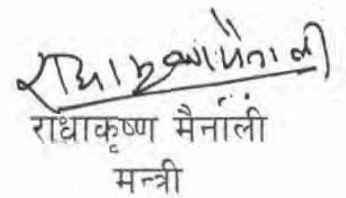 राधाकृष्ण मैनाली
राधाकृष्ण मैनाली
मन्त्री